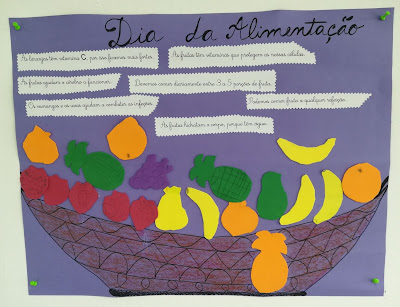 Dia da Alimentação
As laranjas têm vitamina C, por isso ficamos mais fortes.
As frutas têm vitaminas que protegem as nossas células.
As frutas ajudam o cérebro a funcionar.
Devemos comer diariamente entre 3 a 5 porções de fruta.
Os morangos e as uvas ajudam a combater as infeções.
Podemos comer fruta a qualquer refeição.
As frutas hidratam o corpo, porque têm água.